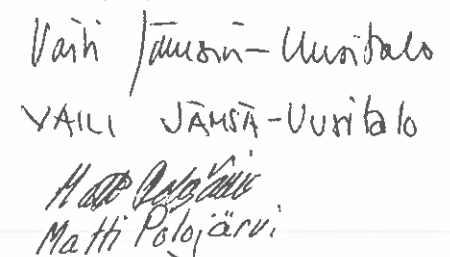 Vaili Jämsä-Uusitalo
VAILI JÄMSÄ-Uusitalo
Matti Polojärvi
Matti Polojärvi